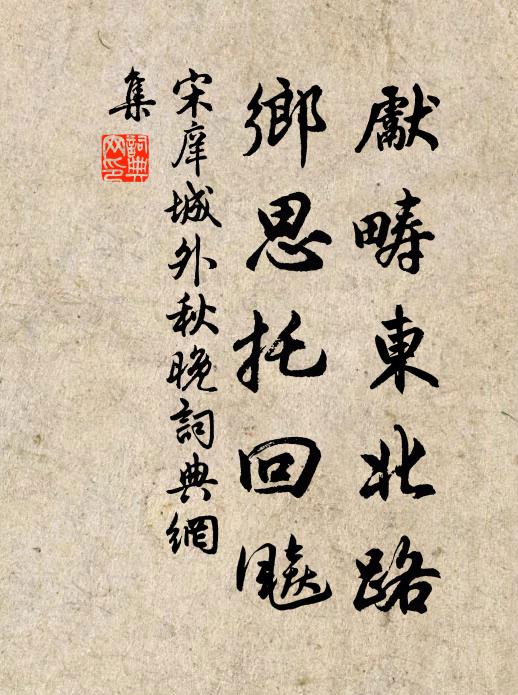 獻疇東北路
鄉思托回飈
宋庠城外秋晚詞典網
集
詞典
网印